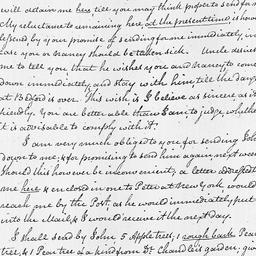 will detain me here till you may think proper to send for me
My reluctance to remaining here, at the present time is how
lessend by your promise of sending for me immediately in
case you or nancy should be taken sick. Uncle desires
me to tell you that he wishes you and nancy to come
down immediately and stay with him till the dang
at Bedford is over. This wish is I believe as sincere as it
friendly. You are better able than I am to judge, whether
it is advisable to comply with it.
I am very much obliged to you for sending John
down to me, & for promising to send him again next week
Should this however be inconvenient, a letter addressed to
me here & enclosed in one to Peter at New York would
reach me by the Post, as he would immediately put
into the Mail & I would receive it the next day.
I shall send by John 5 Apple trees, 1 rough bark Pear
tree, & 1 Pear tree of a kind from Dr. Chandler's garden, giv